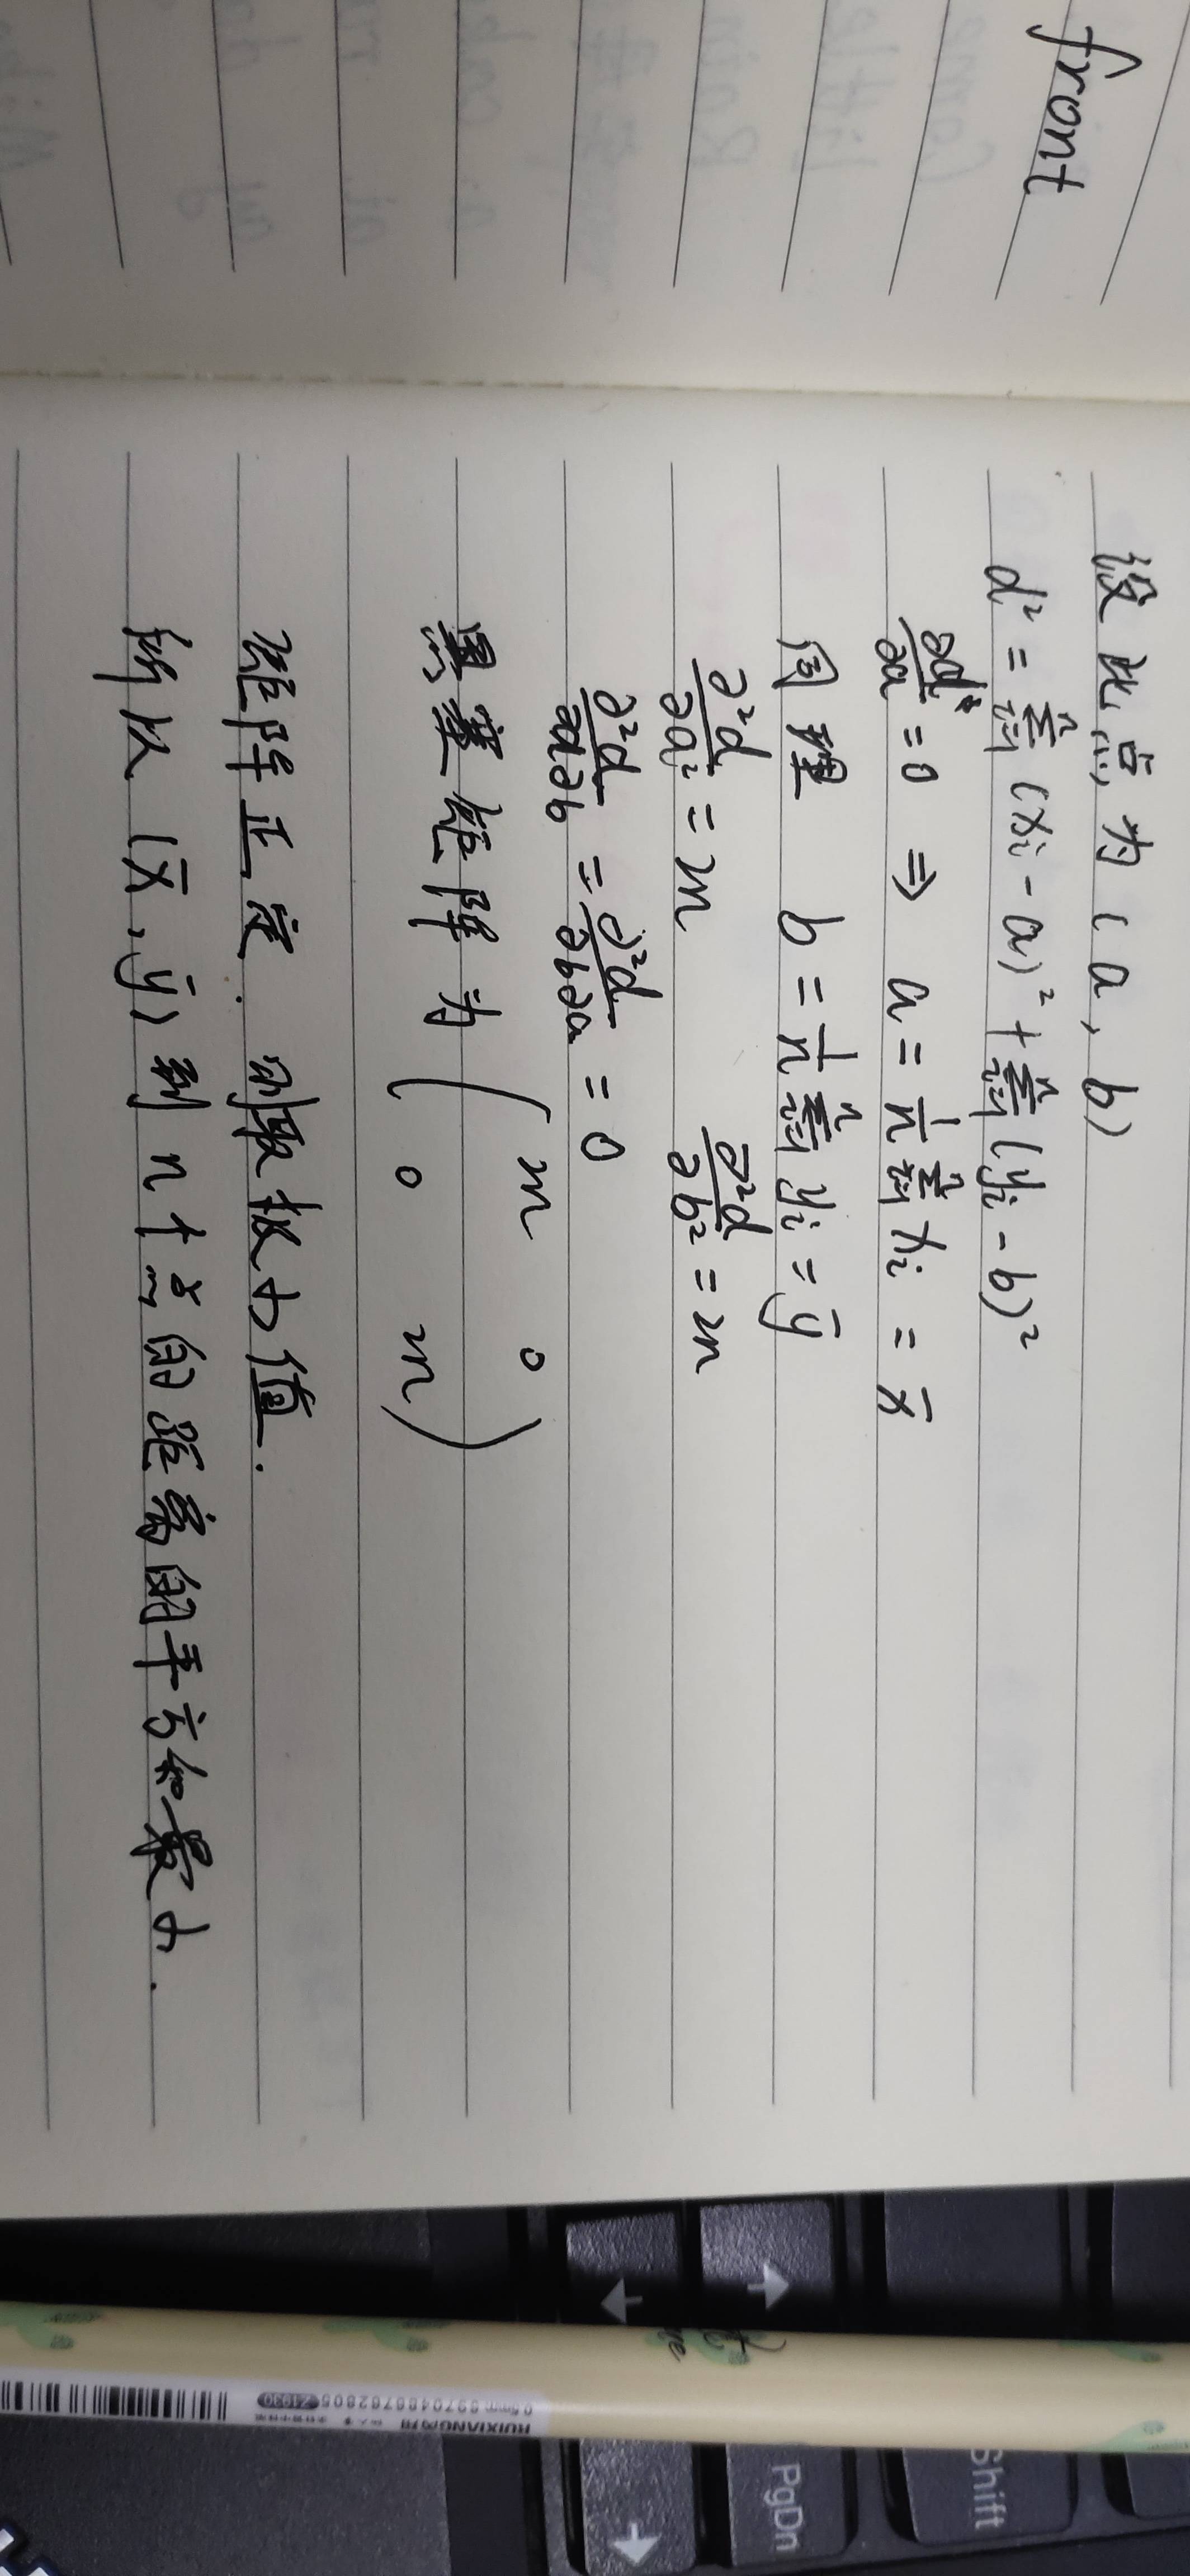 front
设此点为(a, b)
d² = Σⁿᵢ₌₁ (xᵢ - a)² + Σⁿᵢ₌₁ (yᵢ - b)²
∂d²/∂a = 0 ⇒ a = 1/n Σⁿᵢ₌₁ xᵢ = x̄
同理 b = 1/n Σⁿᵢ₌₁ yᵢ = ȳ
∂²d/∂a² = 2n ∂²d/∂b² = 2n
∂²d/∂a∂b = ∂²d/∂b∂a = 0
黑塞矩阵为 ( 2n 0
0 2n )
矩阵正定. 则取极小值.
所以 (x̄, ȳ) 到 n个点的距离的平方和最小.
PgDn
Shift
RUIXIANG
0.5mm